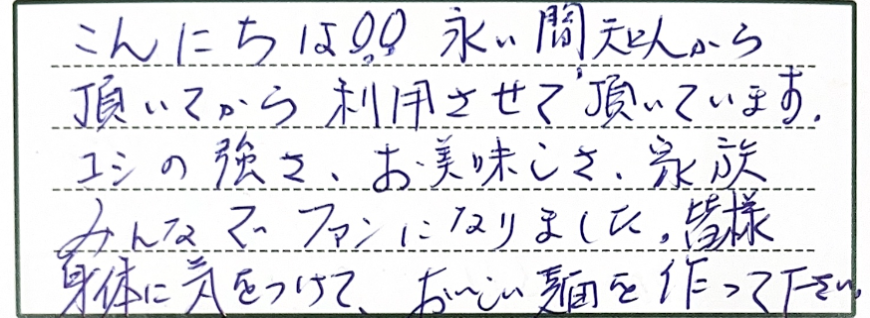 こんにちは!! 永い間知人から
頂いてから利用させて頂いています.
コシの強さ、お美味しさ、家族
みんなでファンになりました。皆様
身体に気をつけて、おいしい麺を作って下さい。